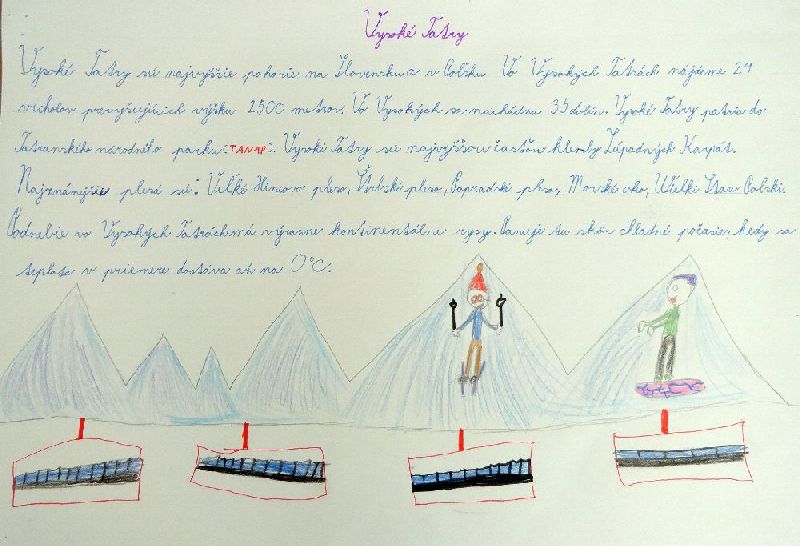 Vysoké Tatry
Vysoké Tatry sú najvyššie pohorie na Slovensku a v Poľsku. Vo Vysokých Tatrách nájdeme 29
vrcholov prevyšujúcich výšku 2500 metrov. Vo Vysokých sa nachádza 35 dolín. Vysoké Tatry patria do
Tatranského národného parku: TANAP. Vysoké Tatry sú najvyššou časťou klenby Západných Karpát.
Najznámejšie plesá sú: Veľké Hincovo pleso, Štrbské pleso, Popradské pleso, Morské oko, Poľski.
Podnebie vo Vysokých Tatrách má výrazne kontinentálne rysy. Panuje tu skôr chladné počasie, kedy sa
teplota v priemere dostáva až na °C.